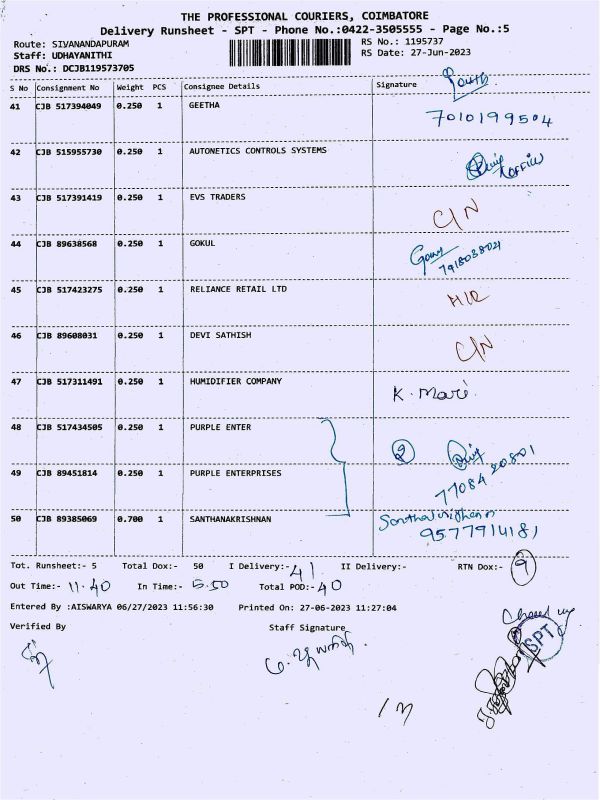 THE PROFESSIONAL COURIERS, COIMBATORE
Delivery Runsheet - SPT - Phone No.:0422-3505555 - Page No.:5
Route: SIVANANDAPURAM
RS No.: 1195737
Staff: UDHAYANITHI
RS Date: 27-Jun-2023
DRS No.: DCJB119573705
S No Consignment No Weight PCS Consignee Details Signature
41 CJB 517394049 0.250 1 GEETHA
7010199504
42 CJB 515955730 0.250 1 AUTONETICS CONTROLS SYSTEMS
OFFICE
43 CJB 517391419 0.250 1 EVS TRADERS
C/N
44 CJB 89638568 0.250 1 GOKUL
45 CJB 517423275 0.250 1 RELIANCE RETAIL LTD
46 CJB 89608031 0.250 1 DEVI SATHISH
C/N
47 CJB 517311491 0.250 1 HUMIDIFIER COMPANY
K. Mari
48 CJB 517434505 0.250 1 PURPLE ENTER
2
49 CJB 89451814 0.250 1 PURPLE ENTERPRISES
77084 20801
50 CJB 89385069 0.700 1 SANTHANAKRISHNAN
9577914181
Tot. Runsheet:- 5 Total Dox:- 50 I Delivery:- 41 II Delivery:- RTN Dox:- 9
Out Time:- 11.40 In Time:- 5.50 Total POD:- 40
Entered By :AISWARYA 06/27/2023 11:56:30 Printed On: 27-06-2023 11:27:04
Verified By Staff Signature
SPT